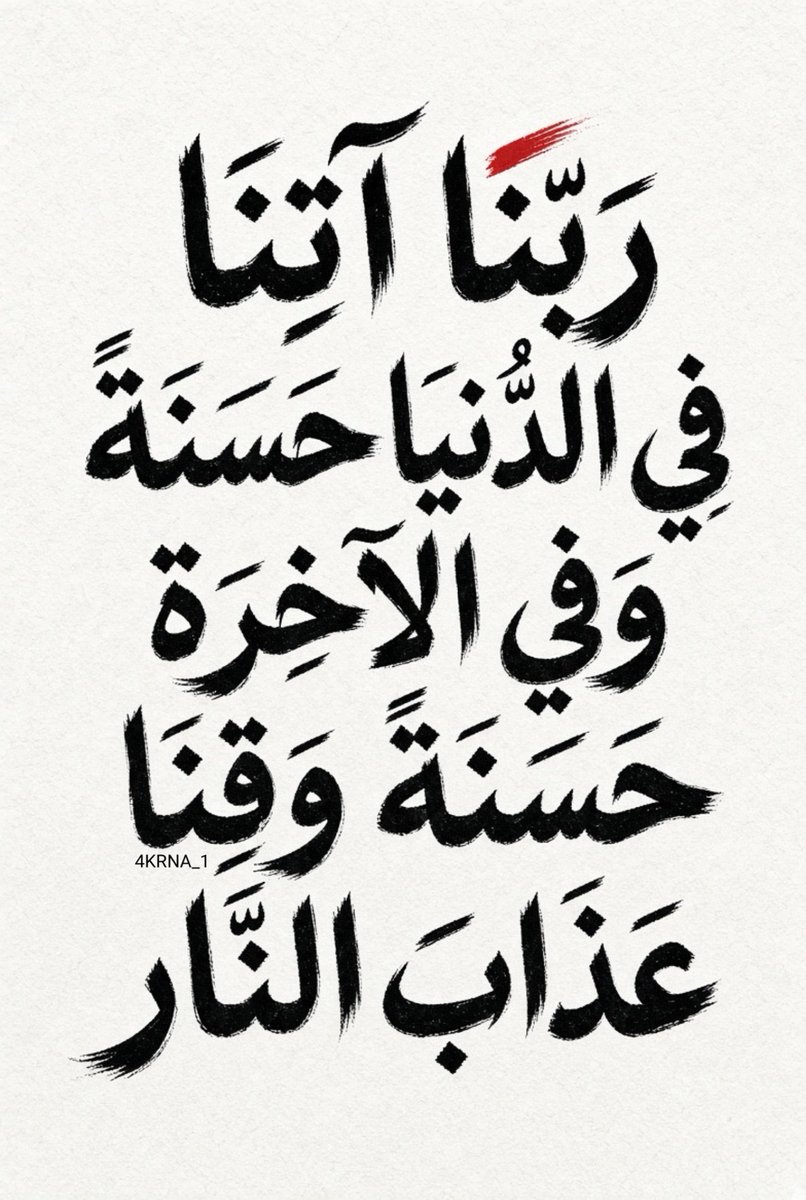 رَبَّنَا آتِنَا
فِي الدُّنيَا حَسَنَةً
وَفي الآخِرَة
حَسَنَةً وَقِنَا
4KRNA_1
عَذَابَ النَّار